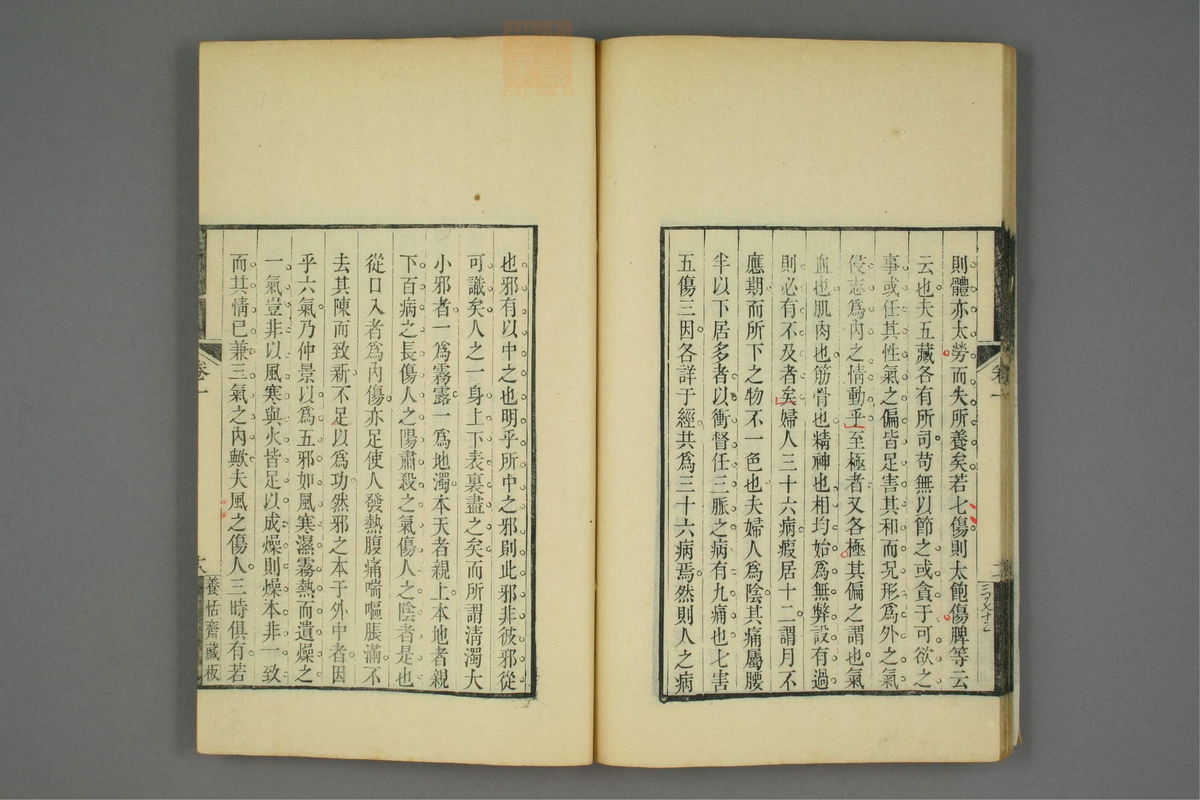 則體亦太勞而失所養矣若七傷則太飽傷脾等云
云也夫五藏各有所司苟無以節之或貪于可欲之
事或任其性氣之偏皆足害其和而况形爲外之氣
侵志爲內之情動乎至極者又各極其偏之謂也氣
血也肌肉也筋骨也精神也相均始爲無弊設有過
則必有不及者矣婦人三十六病瘕居十二謂月不
應期而所下之物不一色也夫婦人爲陰其痛屬腰
半以下居多者以衝督任三脈之病有九痛也七害
五傷三因各詳于經共爲三十六病焉然則人之病
卷一
也邪有以中之也明乎所中之邪則此邪非彼邪從
可識矣人之一身上下表裏盡之矣而所謂清濁大
小邪者一爲霧露一爲地濁本天者親上本地者親
下百病之長傷人之陽肅殺之氣傷人之陰者是也
從口入者爲內傷亦足使人發熱腹痛喘嘔脹滿不
去其陳而致新不足以爲功然邪之本于外中者因
乎六氣乃仲景以爲五邪如風寒濕霧熱而遺燥之
一氣豈非以風寒與火皆足以成燥則燥本非一致
而其情已兼三氣之內歟夫風之傷人三時俱有若
卷一
養恬齋藏板